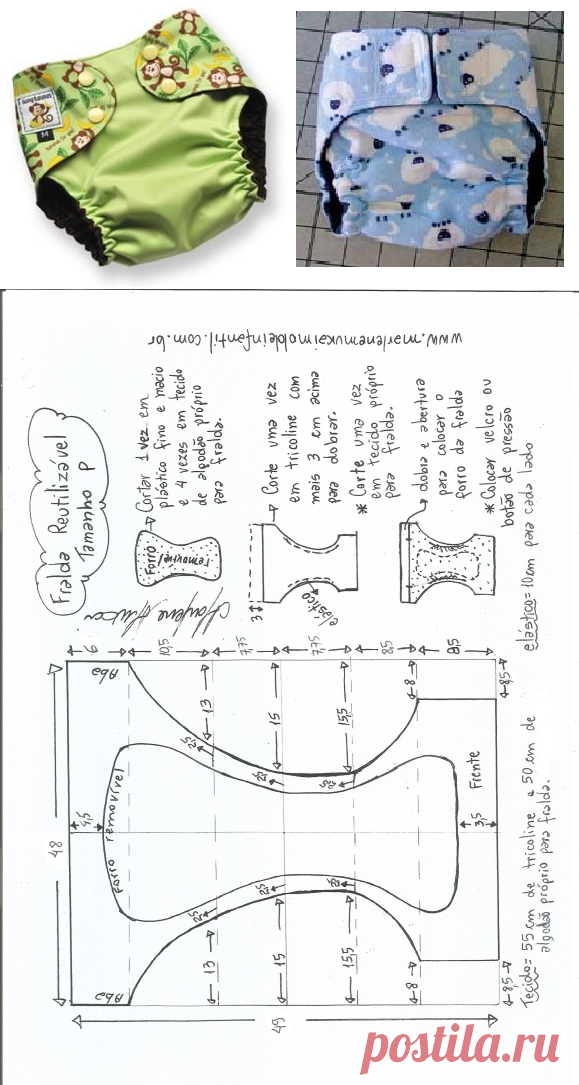 M
www.marlenemukaimoldeinfantil.com.br
Fralda Reutilizável
Tamanho P
Cortar 1 vez em
plástico fino e macio
e 4 vezes em tecido
de algodão próprio
para fralda.
Forro
removível
Corte uma vez
em tricoline com
mais 3 cm acima
para dobrar.
* Corte uma vez
em tecido próprio
para fralda.
3
elástico
dobra e abertura
para colocar o
forro da fralda
* Colocar velcro ou
botão de pressão
elástico= 10cm para cada lado
6
10,5
7,75
7,75
8,5
8,5
Aba
13
15
15,5
8
8,5
2,5
2,5
2,5
48
4,5
Forro removível
Frente
3,5
2,5
2,5
2,5
Aba
13
15
15,5
8
8,5
49
Tecido= 55 cm de tricoline e 50 cm de
algodão próprio para fralda.
postila.ru